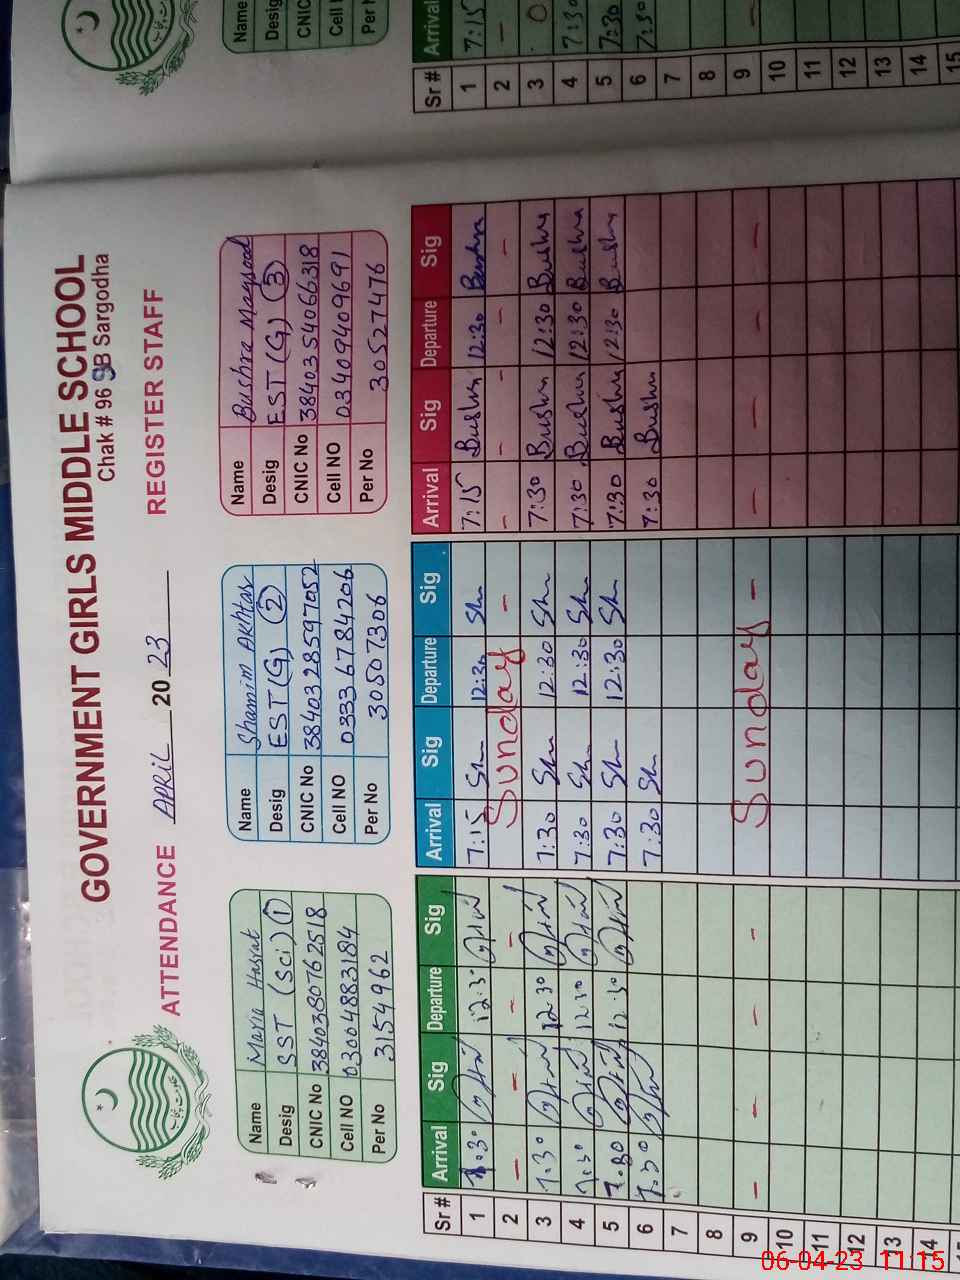 GOVERNMENT GIRLS MIDDLE SCHOOL
Chak # 96 SB Sargodha
ATTENDANCE APRIL 20 23 REGISTER STAFF
Name Maria Hasrat
Desig SST (Sci) 1
CNIC No 3840380762518
Cell NO 03004883184
Per No 31554962
Name Shamim Akhtar
Desig EST (G) 2
CNIC No 3840328597052
Cell NO 0333 6784206
Per No 30507306
Name Bushra Maqsood
Desig EST (G) 3
CNIC No 3840354066318
Cell NO 03409409691
Per No 30527476
Sr # Arrival Sig Departure Sig Arrival Sig Departure Sig Arrival Sig Departure Sig
1 7:30 12:30 7:15 Sh 12:30 Sh 7:15 Bushra 12:30 Bushra
2 - - - - Sunday - - - - -
3 7:30 12:30 7:30 Sh 12:30 Sh 7:30 Bushra 12:30 Bushra
4 7:30 12:30 7:30 Sh 12:30 Sh 7:30 Bushra 12:30 Bushra
5 7:30 12:30 7:30 Sh 12:30 Sh 7:30 Bushra 12:30 Bushra
6 7:30 7:30 Sh 7:30 Bushra
7
8
9 - - - - Sunday - - - - -
10
11
12
13
14
15
Name
Desig
CNIC
Cell N
Per N
Sr # Arrival
1 7:15
2 -
3
4 7:30
5 7:30
6 7:30
7
8
9 -
10
11
12
13
14
15
06-04-23 11:15